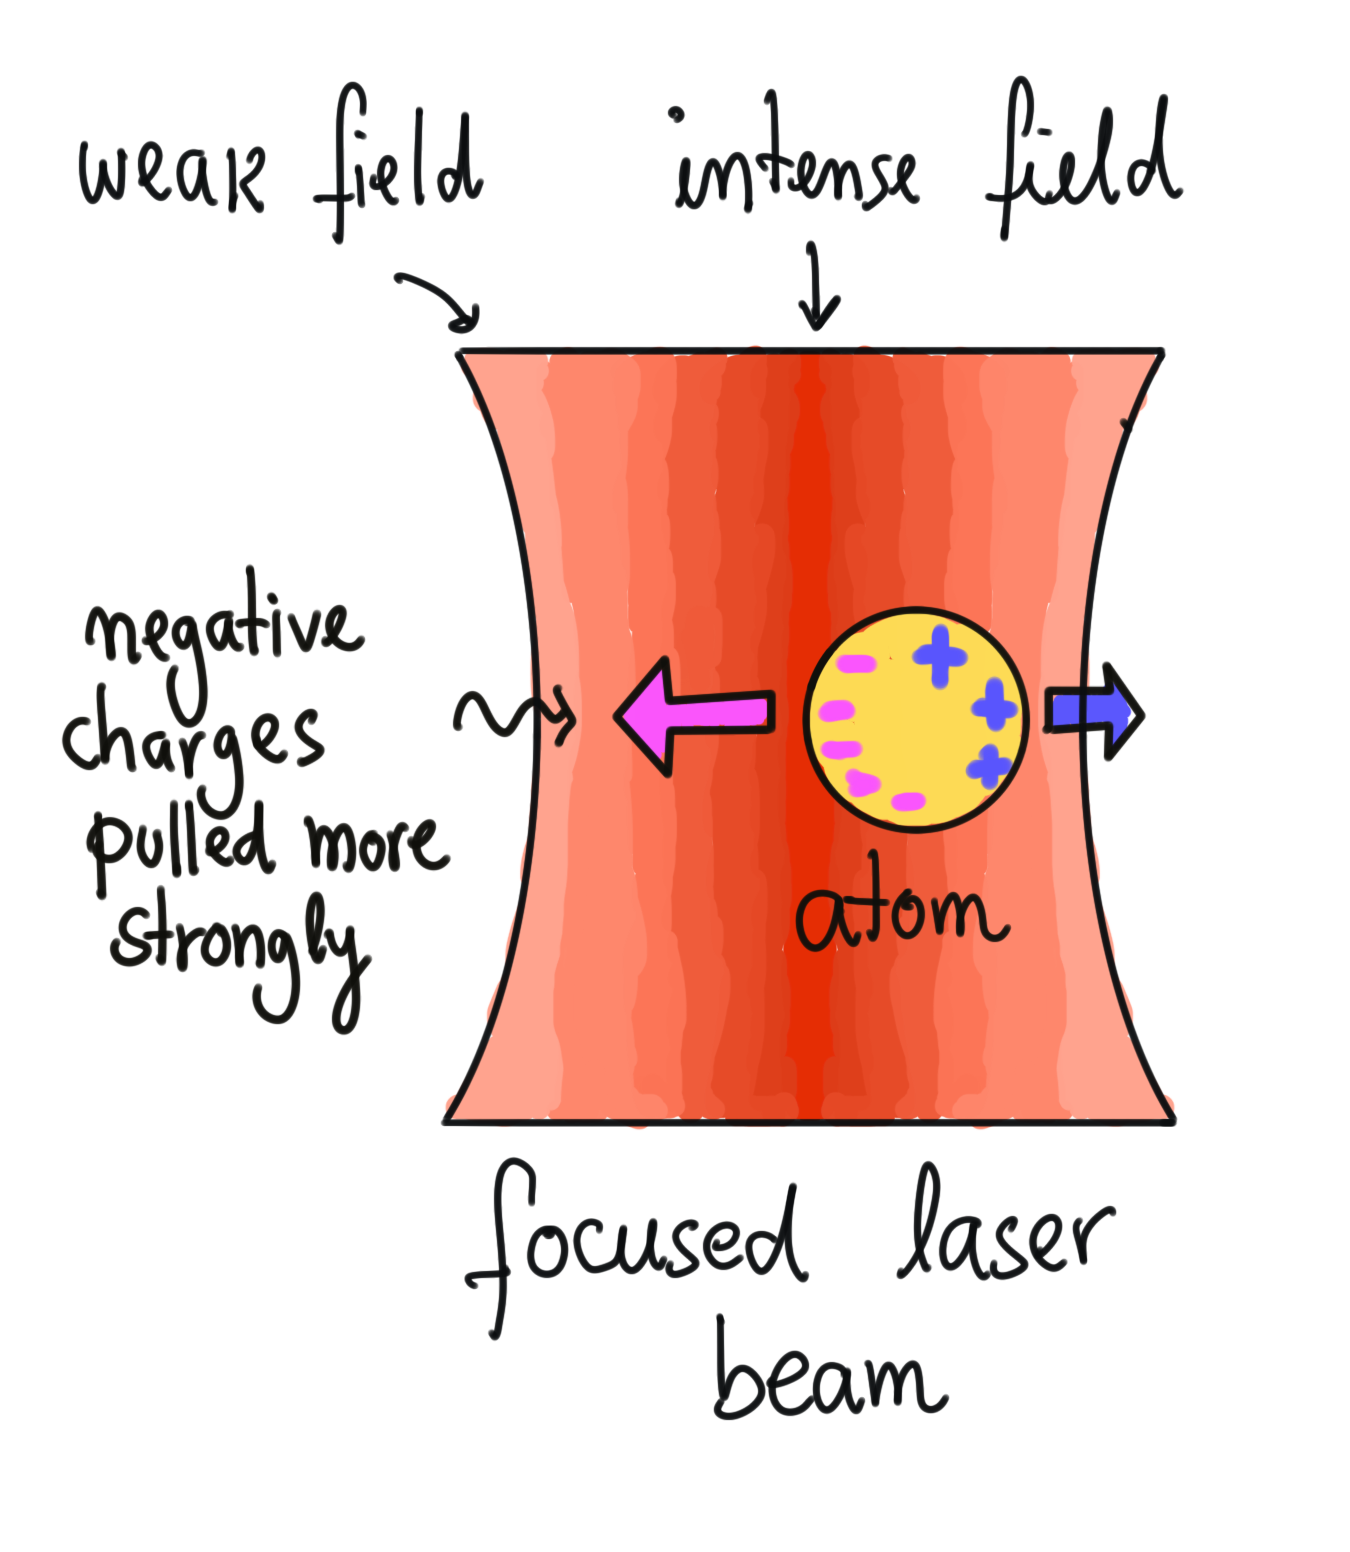 weak field
intense field
negative
charges
pulled more
strongly
atom
focused laser
beam